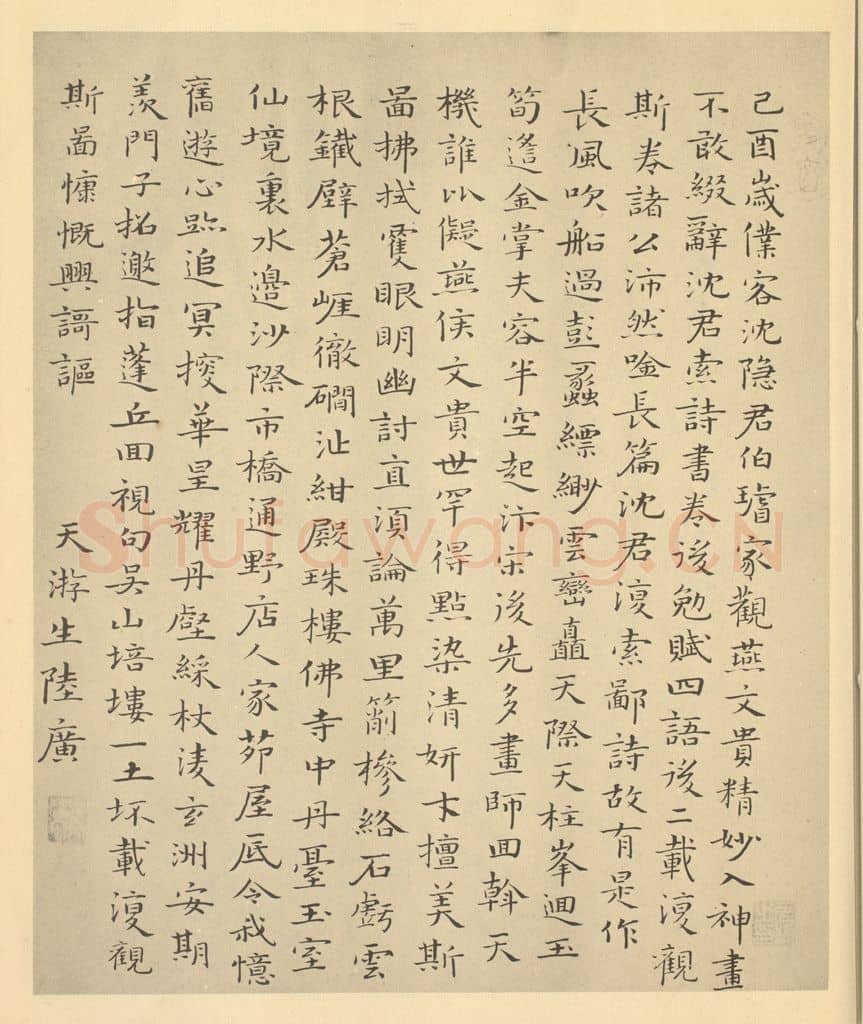 己酉歲僕客沈隐君伯璿家觀燕文貴精妙入神畫
不敢綴辭沈君索詩書卷後勉賦四語後二載復觀
斯卷諸公沛然唫長篇沈君復索鄙詩故有是作
長風吹船過彭蠡縹緲雲巒矗天際天柱峯迴玉
筍逶金掌夫容半空起汴宋後先多畫師回斡天
機誰以儗燕侯文貴世罕得點染清妍才擅美斯
啚拂拭雙眼明幽討直須論萬里箭槮絡石虧雲
根鐵壁蒼崕徹磵沚紺殿珠樓佛寺中丹臺玉室
仙境裏水邉沙際市橋通野店人家茆屋底令我憶
舊遊心跡追冥搜華星耀丹壑綵杖淩玄洲安期
羨門子招邀指蓬丘回視句吳山培塿一土坏載復觀
斯啚慷慨興謌謳
天游生陸廣
Shufawang.CN